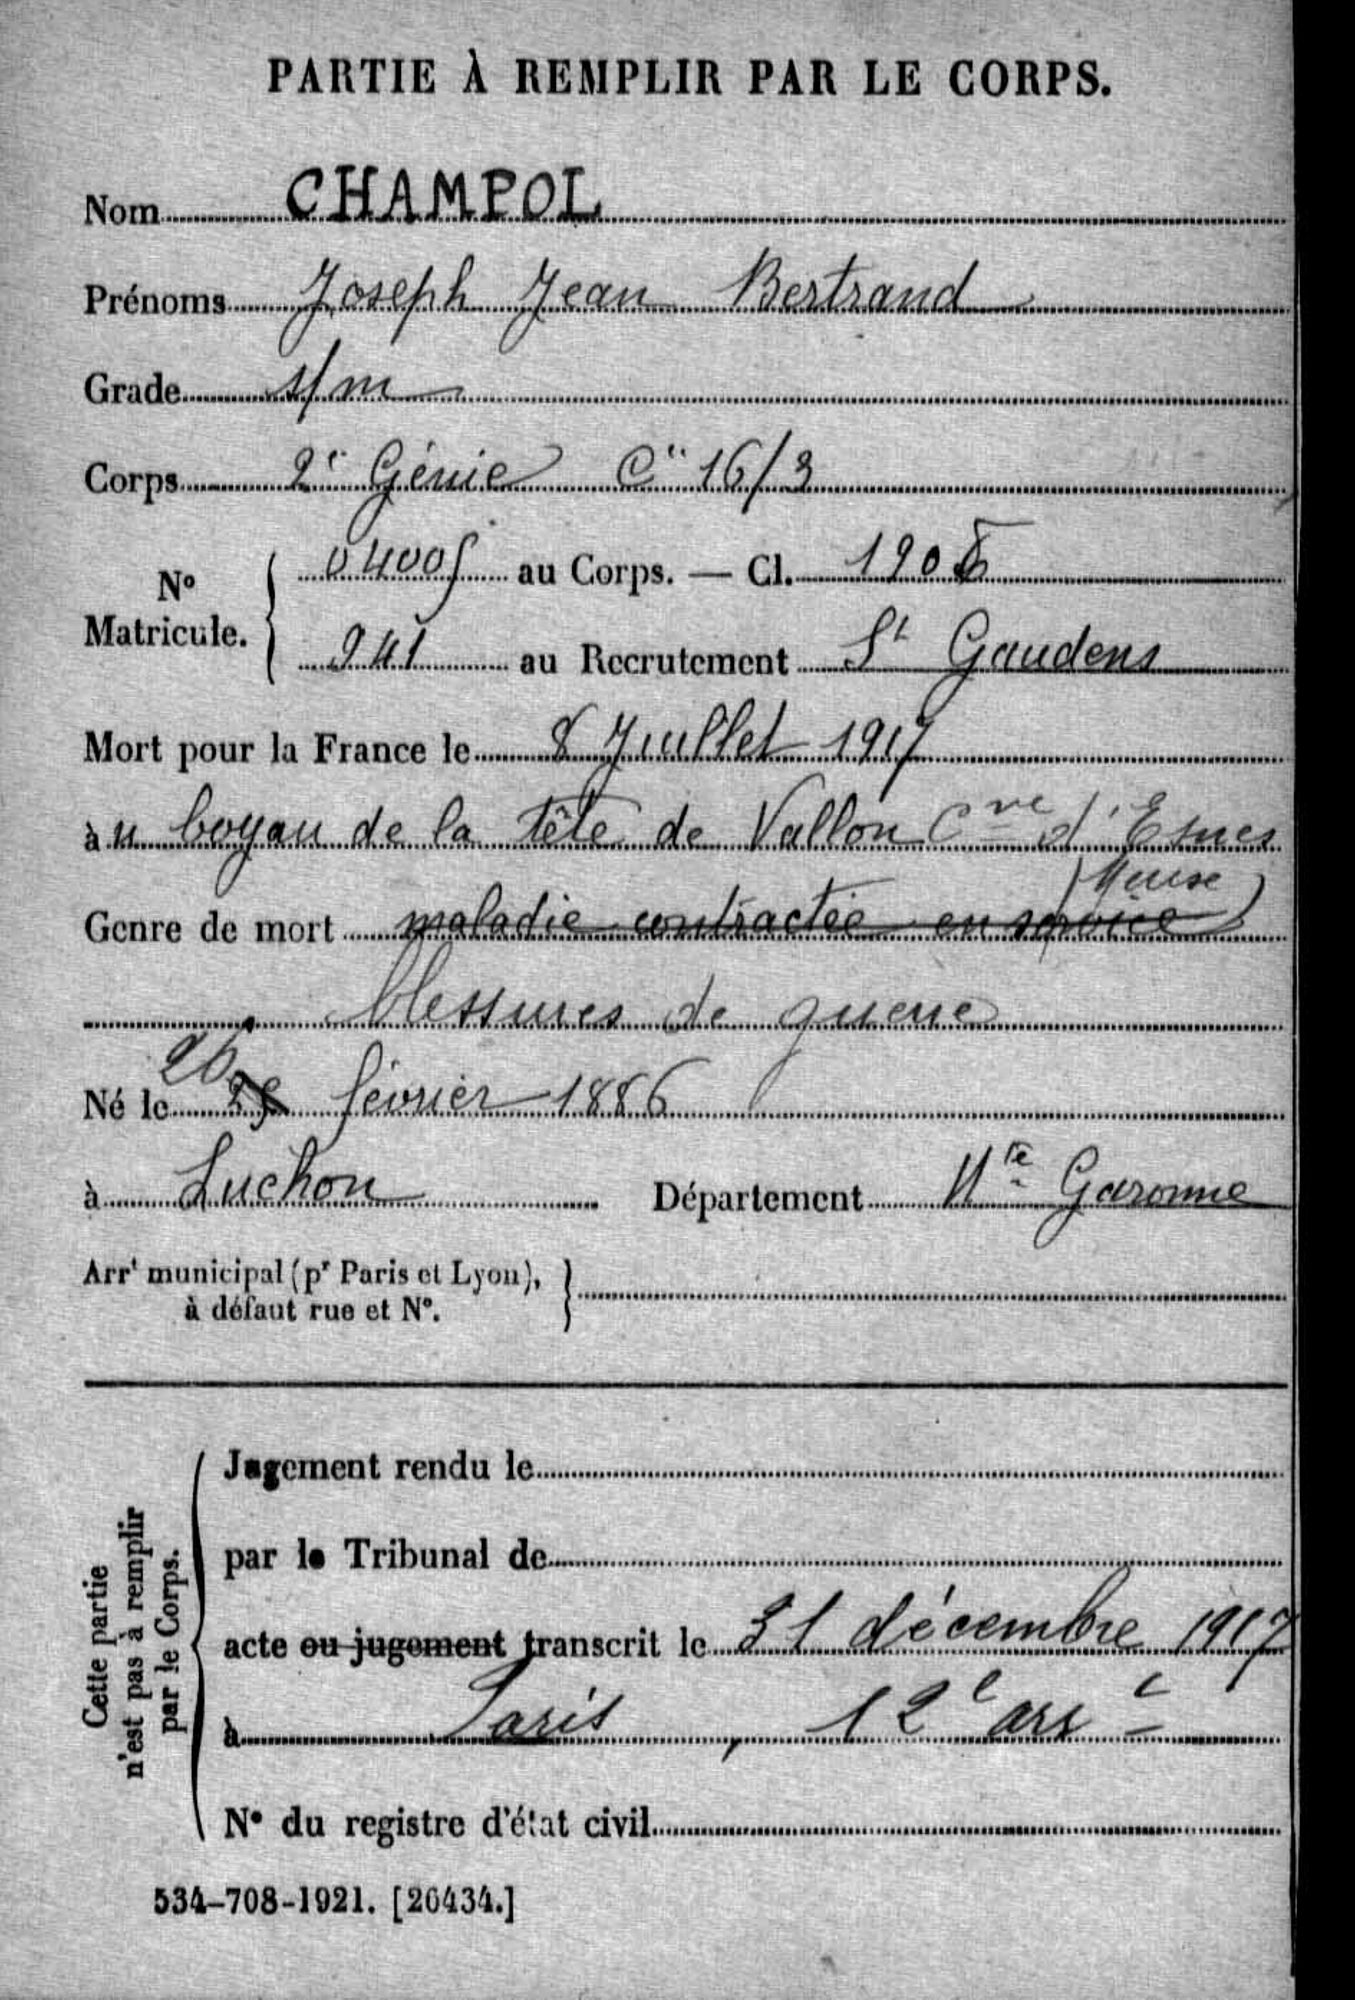 PARTIE À REMPLIR PAR LE CORPS.
Nom CHAMPOL
Prénoms Joseph Jean Bertrand
Grade s/m
Corps 2e Génie Cie 16/3
No Matricule. 04005 au Corps. — Cl. 190
941 au Recrutement St Gaudens
Mort pour la France le 8 Juillet 1917
au boyau de la tête de Vallon Cne d'Esnes
(Meuse)
Genre de mort maladie contractée en service
blessures de guerre
26
Né le février 1886
à Luchon Département Hte Garonne
Arrt municipal (pr Paris et Lyon),
à défaut rue et No.
Cette partie n'est pas à remplir par le Corps.
Jugement rendu le
par le Tribunal de
acte ou jugement transcrit le 31 décembre 1917
à Paris, 12e arrt
No du registre d'état civil
534-708-1921. [26434.]